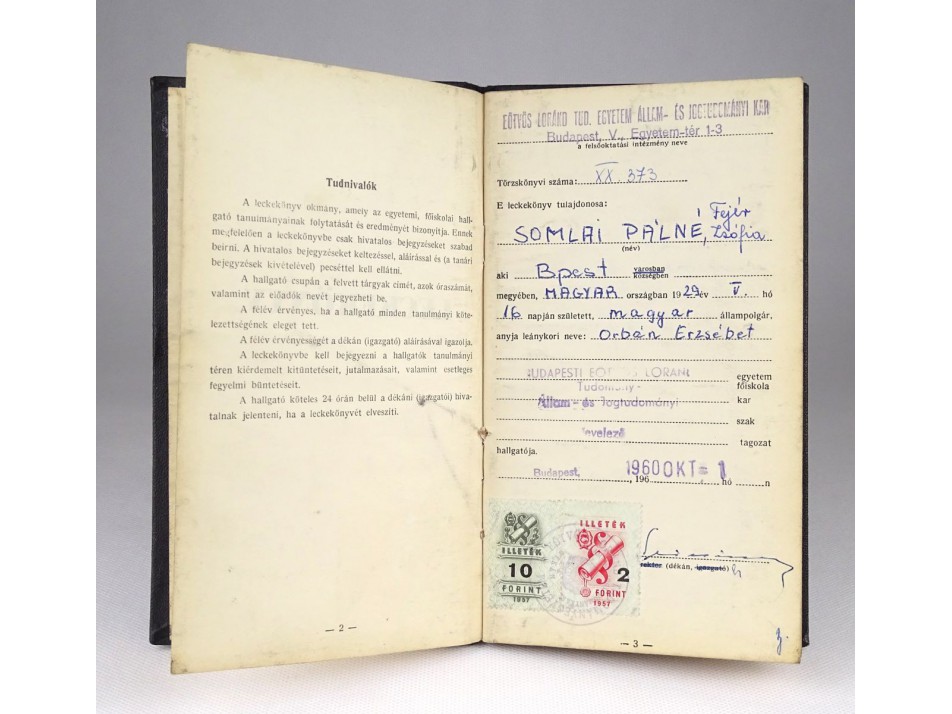 Tudnivalók
A leckekönyv okmány, amely az egyetemi, főiskolai hall-
gató tanulmányainak folytatását és eredményét bizonyítja. Ennek
megfelelően a leckekönyvbe csak hivatalos bejegyzéseket szabad
beírni. A hivatalos bejegyzéseket keltezéssel, aláírással és (a tanári
bejegyzések kivételével) pecséttel kell ellátni.
A hallgató csupán a felvett tárgyak címét, azok óraszámát,
valamint az előadók nevét jegyezheti be.
A félév érvényes, ha a hallgató minden tanulmányi kötel-
ezettségének eleget tett.
A félév érvényességét a dékán (igazgató) aláírásával igazolja.
A leckekönyvbe kell bejegyezni a hallgatók tanulmányi
téren kiérdemelt kitüntetéseit, jutalmazásait, valamint esetleges
fegyelmi büntetéseit.
A hallgató köteles 24 órán belül a dékáni (igazgatói) hiva-
talnak jelenteni, ha a leckekönyvét elveszíti.
— 2 —
EÖTVÖS LORÁND TUD. EGYETEM ÁLLAM- ÉS JOGTUDOMÁNYI KAR
Budapest, V., Egyetem-tér 1-3
a felsőoktatási intézmény neve
Törzskönyvi száma: XX. 373
E leckekönyv tulajdonosa:
SOMLAI PÁLNÉ, Fejér Zsófia
(név)
aki Bpest városban községben
megyében, MAGYAR országban 1929 év V. hó
16 napján született, magyar állampolgár,
anyja leánykori neve: Orbán Erzsébet
BUDAPESTI EÖTVÖS LORÁND egyetem
Tudomány- főiskola
Állam- és Jogtudományi kar
szak
levelező tagozat
hallgatója.
Budapest, 1960 OKT 1, 196 hó n
ILLETÉK
10
FORINT
1957
ILLETÉK
2
FORINT
1957
rektor (dékán, igazgató) h
— 3 —